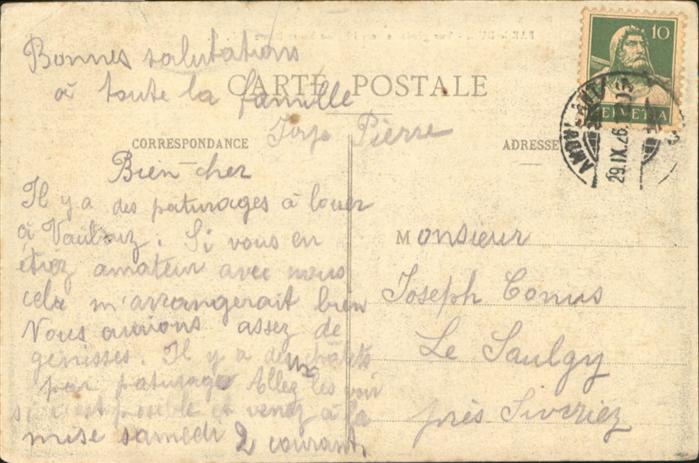 Bonnes salutations
à toute la famille
CARTE POSTALE
Pierre
CORRESPONDANCE
ADRESSE
10
HELVETIA
29.IX.26
Bien cher
Il y a des paturages à louer
à Vaulruz. Si vous en
étiez amateur avec nous
cela m'arrangerait bien
Nous aurions assez de
genisses. Il y a deux chalets
par paturage Allez les voir
si c'est posible et venez à la
mise samedi 2 courant
Monsieur
Joseph Comus
Le Saulgy
près Siviriez